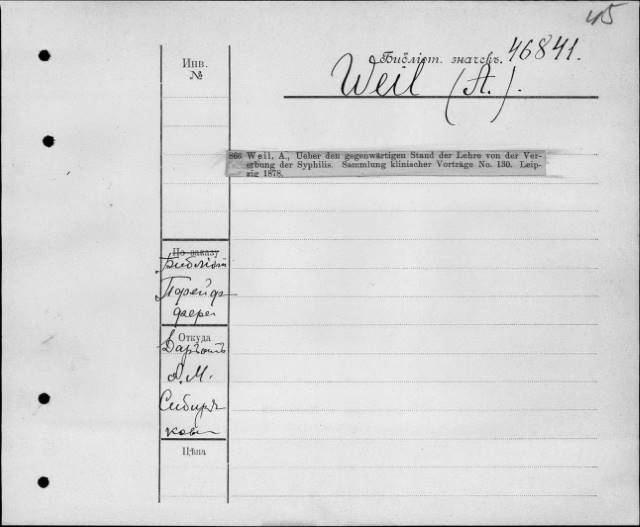 45
Библіот. значекъ. 46841.
Инв.
№
Weil (A.).
866 Weil, A., Ueber den gegenwärtigen Stand der Lehre von der Ver-
erbung der Syphilis. Sammlung klinischer Vorträge No. 130. Leip-
zig 1878.
По заказу
Библіот
Порейф
фера
Откуда
Даръ
А. М.
Сибиря
кова
Цѣна